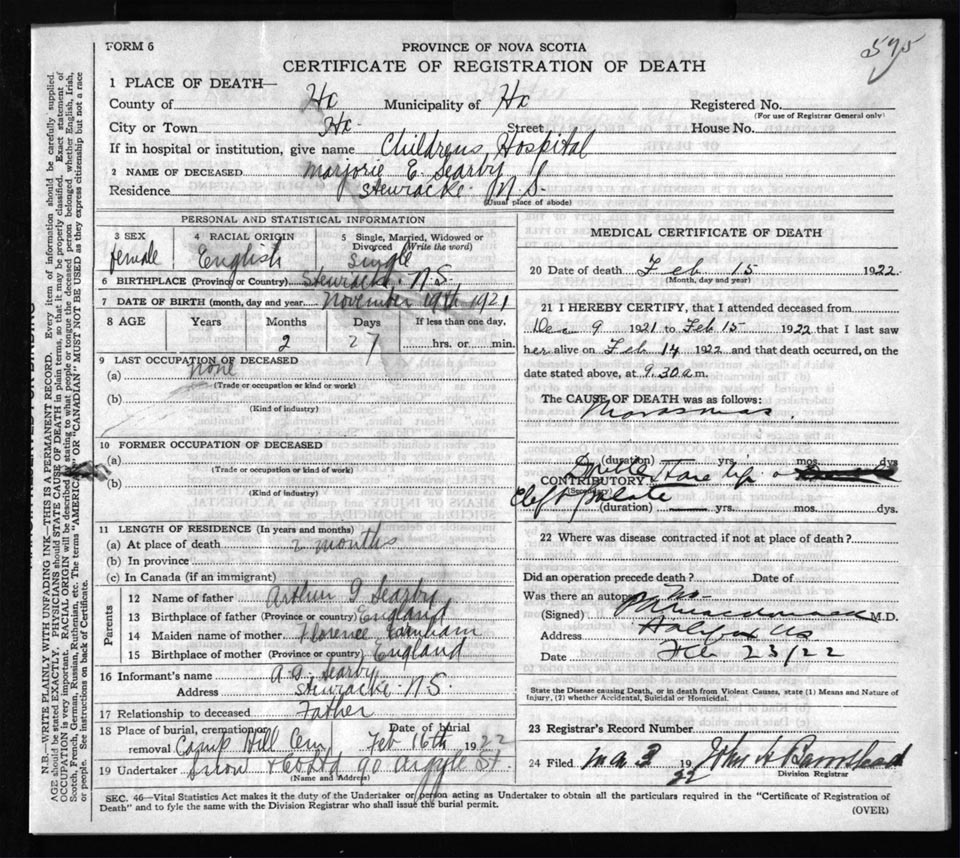 595
FORM 6
PROVINCE OF NOVA SCOTIA
CERTIFICATE OF REGISTRATION OF DEATH
1 PLACE OF DEATH—
County of Hx Municipality of Hx Registered No.
(For use of Registrar General only)
City or Town Hx. Street House No.
If in hospital or institution, give name Childrens Hospital
2 NAME OF DECEASED Marjorie E. Searby
Residence Stewiacke N.S.
(Usual place of abode)
PERSONAL AND STATISTICAL INFORMATION
3 SEX female
4 RACIAL ORIGIN English
5 Single, Married, Widowed or Divorced (Write the word) Single
6 BIRTHPLACE (Province or Country) Stewiacke. N.S.
7 DATE OF BIRTH (month, day and year) November 19th 1921
8 AGE Years Months Days If less than one day,
2 27 hrs. or min.
9 LAST OCCUPATION OF DECEASED
(a) none
(Trade or occupation or kind of work)
(b)
(Kind of industry)
10 FORMER OCCUPATION OF DECEASED
(a)
(Trade or occupation or kind of work)
(b)
(Kind of industry)
11 LENGTH OF RESIDENCE (In years and months)
(a) At place of death 2 months
(b) In province
(c) In Canada (if an immigrant)
Parents
12 Name of father Arthur G Searby
13 Birthplace of father (Province or country) England
14 Maiden name of mother Florence Farnham
15 Birthplace of mother (Province or country) England
16 Informant's name A.G. Searby
Address Stewiacke N.S.
17 Relationship to deceased Father
18 Place of burial, cremation or removal Camp Hill Cem Date of burial Feb 16th 1922
19 Undertaker Snow & Co Ltd 90 Argyle St.
(Name and Address)
MEDICAL CERTIFICATE OF DEATH
20 Date of death Feb 15 1922
(Month, day and year)
21 I HEREBY CERTIFY, that I attended deceased from
Dec 9 1921 to Feb 15 1922 that I last saw
her alive on Feb 14 1922 and that death occurred, on the
date stated above, at 9.30 a m.
The CAUSE OF DEATH was as follows:
Marasmus.
(duration) yrs. mos. dys
CONTRIBUTORY Double Hare lip &
(Secondary) Cleft palate
(duration) yrs. mos. dys.
22 Where was disease contracted if not at place of death?
Did an operation precede death? Date of
Was there an autopsy No
(Signed) M.D.
Address Halifax NS
Date Feb 23/22
State the Disease causing Death, or in death from Violent Causes, state (1) Means and Nature of
Injury, (2) whether Accidental, Suicidal or Homicidal.
23 Registrar's Record Number
24 Filed Mar 3 1922 John A Barnstead
Division Registrar
SEC. 46—Vital Statistics Act makes it the duty of the Undertaker or person acting as Undertaker to obtain all the particulars required in the "Certificate of Registration of
Death" and to fyle the same with the Division Registrar who shall issue the burial permit.
(OVER)
N.B.—WRITE PLAINLY WITH UNFADING INK—THIS IS A PERMANENT RECORD. Every item of information should be carefully supplied.
AGE should be stated EXACTLY. PHYSICIANS should STATE CAUSE OF DEATH in plain terms, so that it may be properly classified. Exact statement of
OCCUPATION is very important. RACIAL ORIGIN will be described by stating to what people or tongue the deceased person belonged whether English, Irish,
Scotch, French, German, Russian, Ruthenian, etc. The terms "AMERICAN" OR "CANADIAN" MUST NOT BE USED as they express citizenship but not a race
or people. See instructions on back of Certificate.